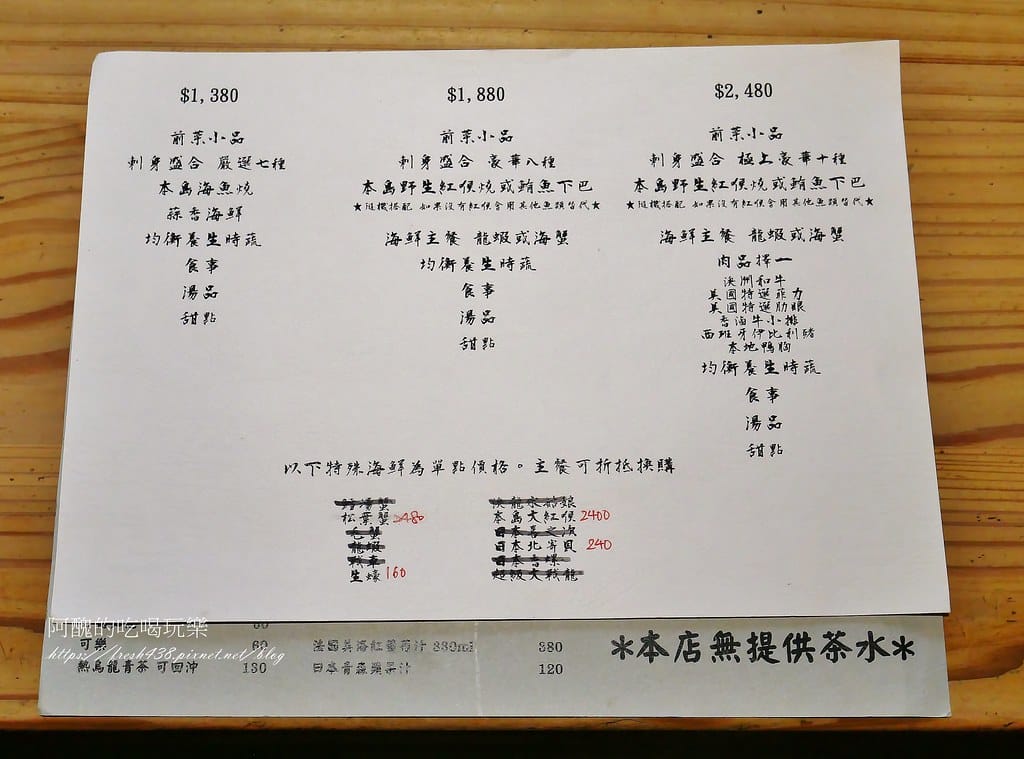 $1,380
前菜小品
刺身盛合 嚴選七種
本島海魚燒
蒜香海鮮
均衡養生時蔬
食事
湯品
甜點
$1,880
前菜小品
刺身盛合 豪華八種
本島野生紅喉燒或鮪魚下巴
★隨機搭配 如果沒有紅喉會用其他魚頭替代★
海鮮主餐 龍蝦或海蟹
均衡養生時蔬
食事
湯品
甜點
$2,480
前菜小品
刺身盛合 極上豪華十種
本島野生紅喉燒或鮪魚下巴
★隨機搭配 如果沒有紅喉會用其他魚頭替代★
海鮮主餐 龍蝦或海蟹
肉品擇一
澳洲和牛
美國特選菲力
美國特選肋眼
香滷牛小排
西班牙伊比利豬
本地鴨胸
均衡養生時蔬
食事
湯品
甜點
以下特殊海鮮為單點價格。主餐可折抵換購
松葉蟹 2480
毛蟹
龍蝦
生蠔 160
本島大紅喉 2400
日本北寄貝 240
超級大戰龍
60
可樂 60
熱烏龍青茶 可回沖 130
380
日本青森蘋果汁 120
*本店無提供茶水*
阿醜的吃喝玩樂
https://fresh438.pixnet.net/blog